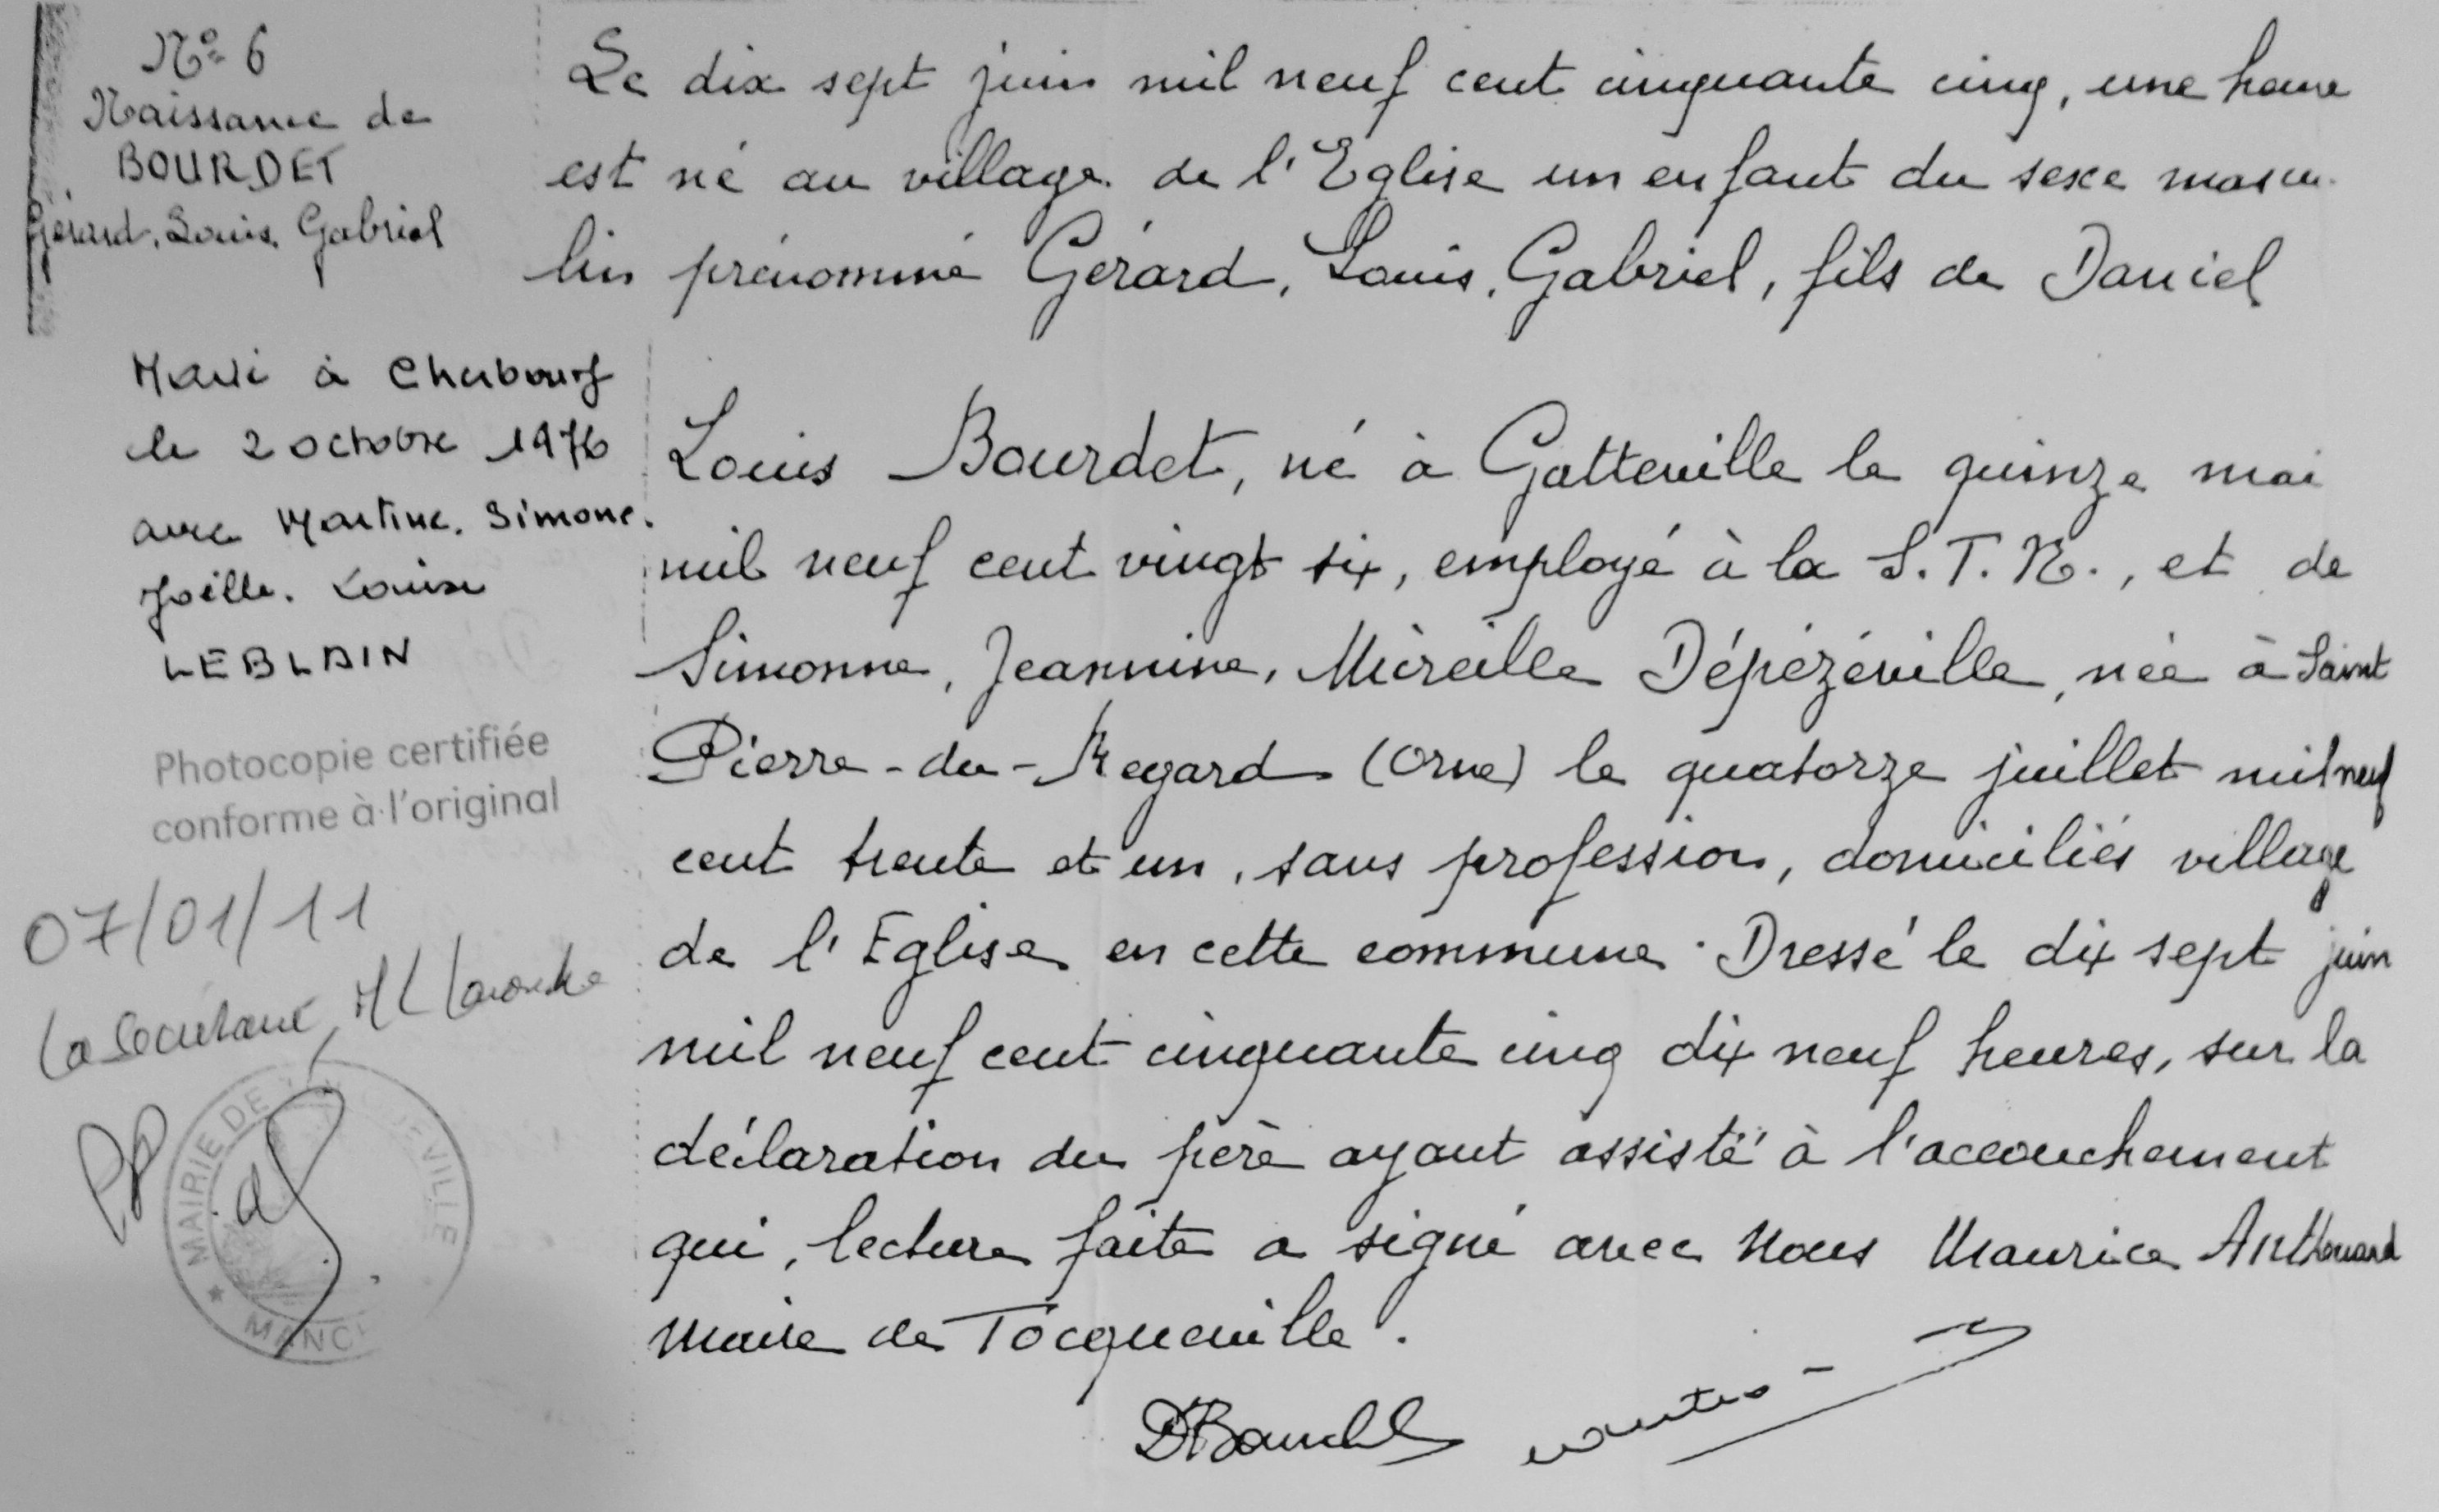 N° 6
Naissance de
BOURDET
Gérard, Louis, Gabriel
Le dix sept juin mil neuf cent cinquante cinq, une heure
est né au village de l'Eglise un enfant du sexe mascu-
lin prénommé Gérard, Louis, Gabriel, fils de Daniel
Louis Bourdet, né à Gatteville le quinze mai
mil neuf cent vingt six, employé à la S.T.N., et de
Simonne, Jeannine, Mireille Dépézéville, née à Saint
Pierre-du-Regard (Orne) le quatorze juillet mil neuf
cent trente et un, sans profession, domiciliés village
de l'Eglise en cette commune. Dressé le dix sept juin
mil neuf cent cinquante cinq dix neuf heures, sur la
déclaration du père ayant assisté à l'accouchement
qui, lecture faite a signé avec Nous Maurice Anthouard
Maire de Tocqueville.
Marié à Cherbourg
le 2 octobre 1976
avec Martine, Simone,
Joëlle, Louise
LEBLAIN
Photocopie certifiée
conforme à l'original
07/01/11
La Secrétaire, ML
MAIRIE DE TOCQUEVILLE
MANCHE
DBourdet